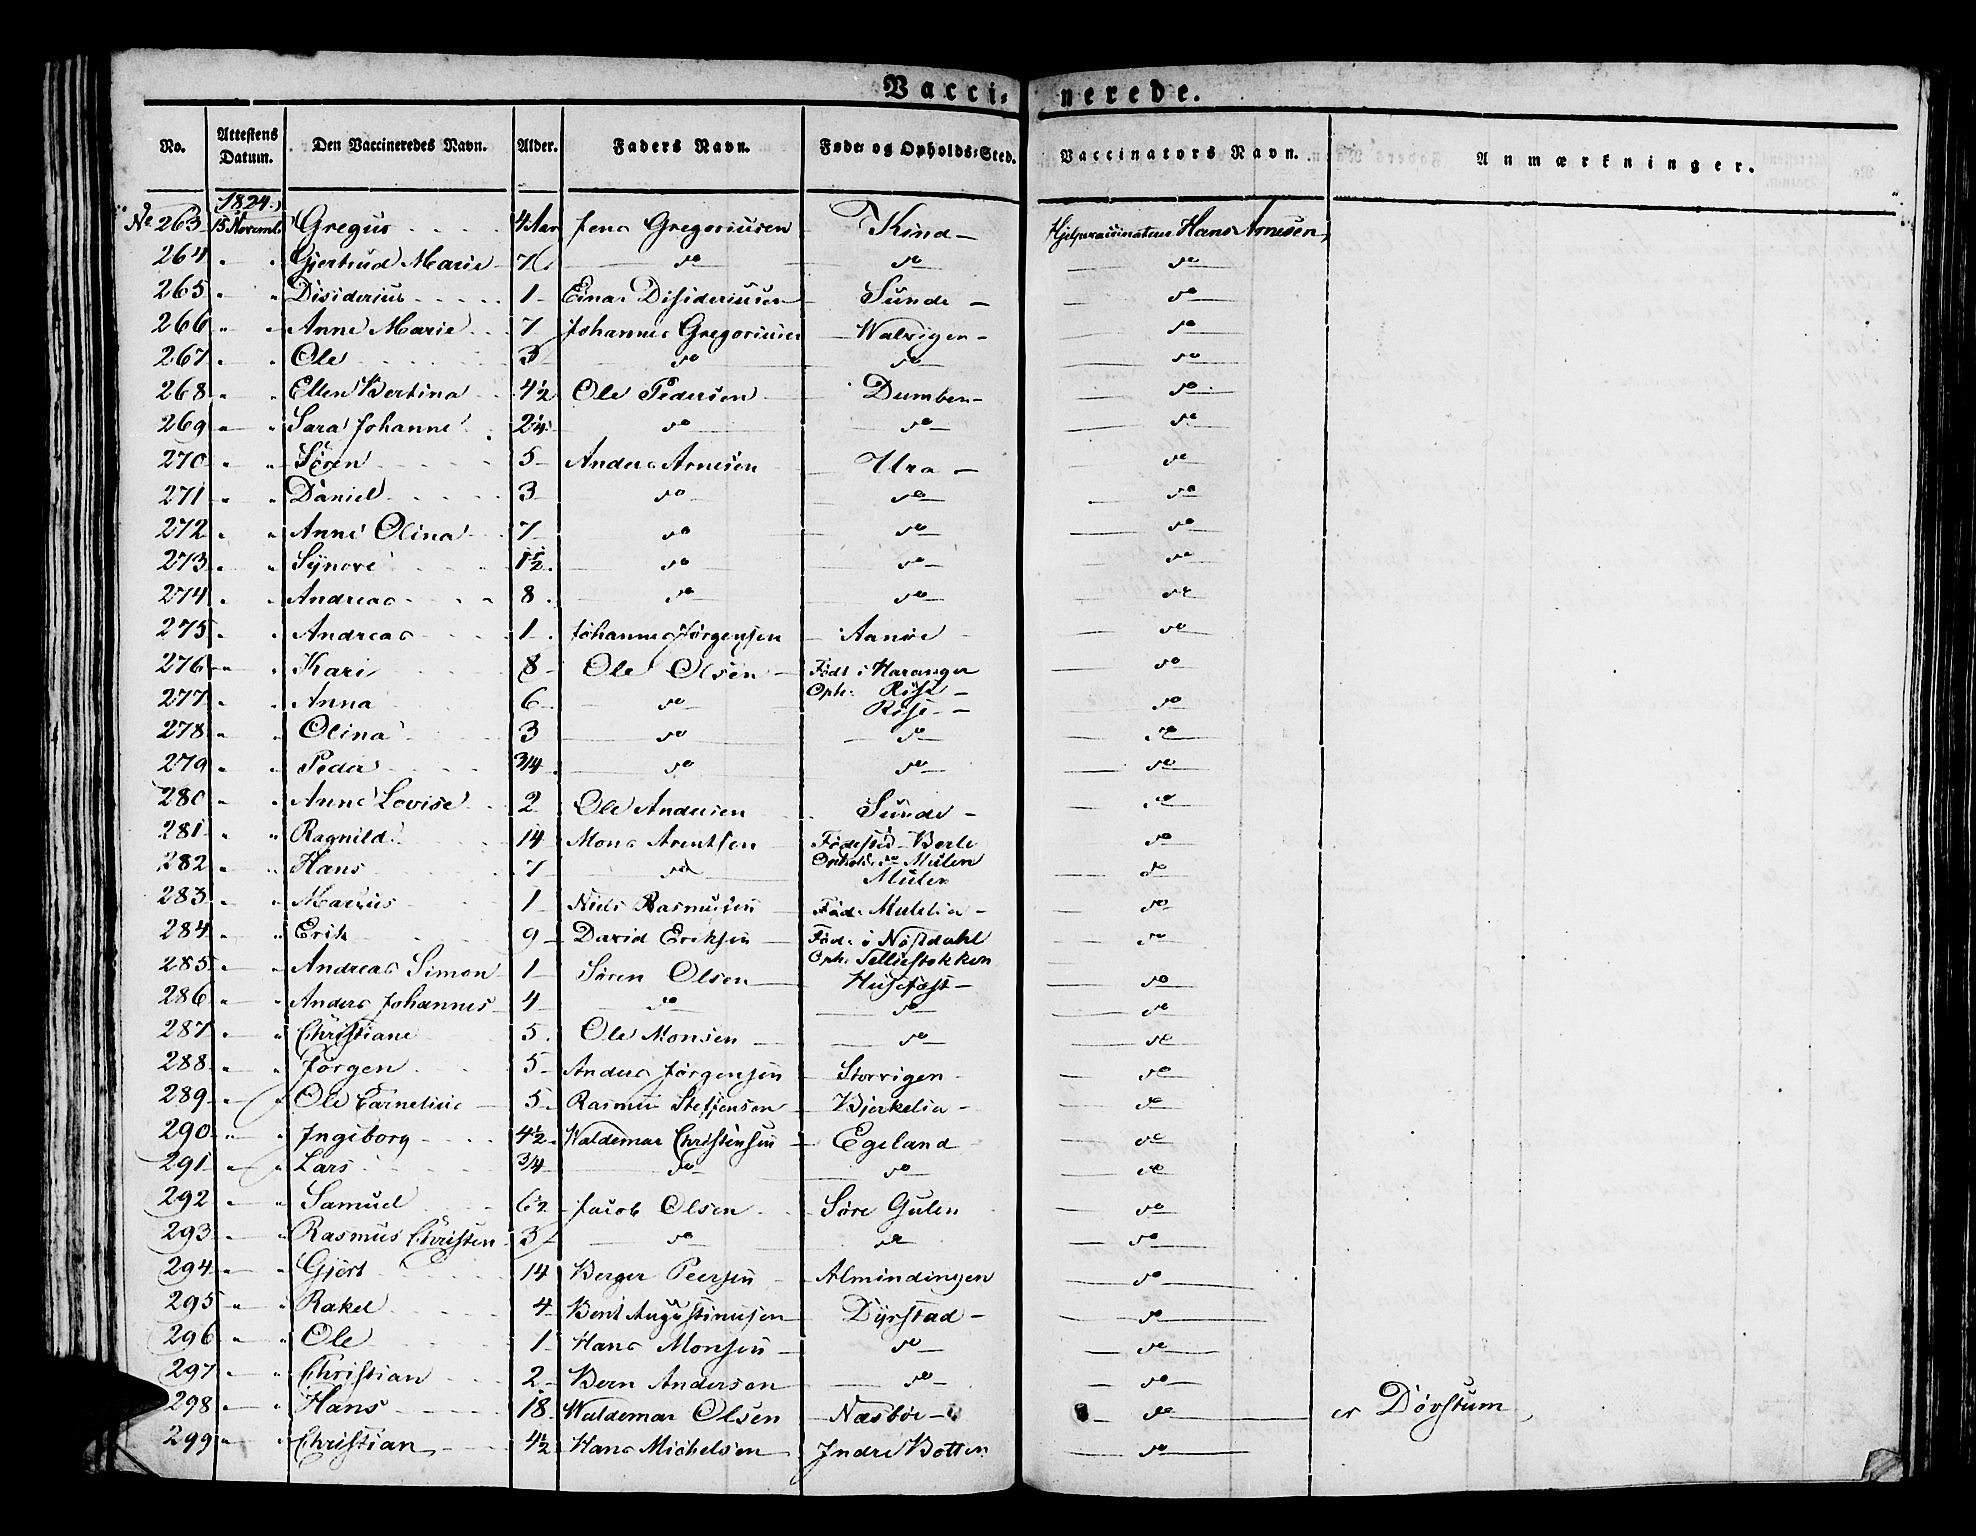 Vacci- nerede.
No. Attestens Datum. Den Vaccineredes Navn. Alder. Faders Navn. Føde og Opholds-Sted. Vaccinators Navn. Anmærkninger.
1824.
No 263 15 Novemb. Gregus 4 Aar Jens Gregoriusen Kind Hjelpevaccinateur Hans Arnesen,
264 " " Gjertrud Marie 7 do do do
265 " " Disiderius 1 Einar Disideriusen Sunde do
266 " " Anne Marie 7 Johannes Gregoriusen Walvigen do
267 " " Ole 3 do do do
268 " " Ellen Bertina 4½ Ole Pedersen Dumben do
269 " " Sara Johanne 2¼ do do do
270 " " Sören 5 Anders Arnesen Ura do
271 " " Daniel 3 do do do
272 " " Anne Olina 7 do do do
273 " " Synove 1½ do do do
274 " " Andreas 8 do do do
275 " " Andreas 1 Johannes Jørgensen Aanøe do
276 " " Kari 8 Ole Olsen Født i Haranger do
Oph: Rise
277 " " Anna 6 do Rise do
278 " " Olina 3 do do do
279 " " Peder 3/4 do do do
280 " " Anne Lovise 2 Ole Andersen Sunde do
281 " " Ragnild 14 Mons Arentsen Födested Berle do
Ophold: do Mulen
282 " " Hans 7 do Mulen do
283 " " Marius 1 Niels Rasmusen Föd: Mulelia do
284 " " Erik 9 David Eriksen Föd: i Nøstdahl do
Oph: Selliestokken
285 " " Andreas Simon 1 Søren Olsen Husefast do
286 " " Anders Johannes 4 do do do
287 " " Christiane 5 Ole Monsen do do
288 " " Jørgen 5 Anders Jørgensen Storvigen do
289 " " Ole Cornelius 5 Rasmus Steffensen Bjerkelia do
290 " " Ingeborg 4½ Waldemar Christensen Egeland do
291 " " Lars 3/4 do do do
292 " " Samuel 6½ Jacob Olsen Søre Gulen do
293 " " Rasmus Christen 3 do do do
294 " " Gjert 14 Berger Peersen Almindingen do
295 " " Rakel 4 Bent Augustinusen Dyrstad do
296 " " Ole 1 Hans Monsen do do
297 " " Christian 2 Bern Andersen do do
298 " " Hans 18 Waldemar Olsen Næsbøe do er Døvstum,
299 " " Christian 4½ Hans Michelsen Indre Botten do